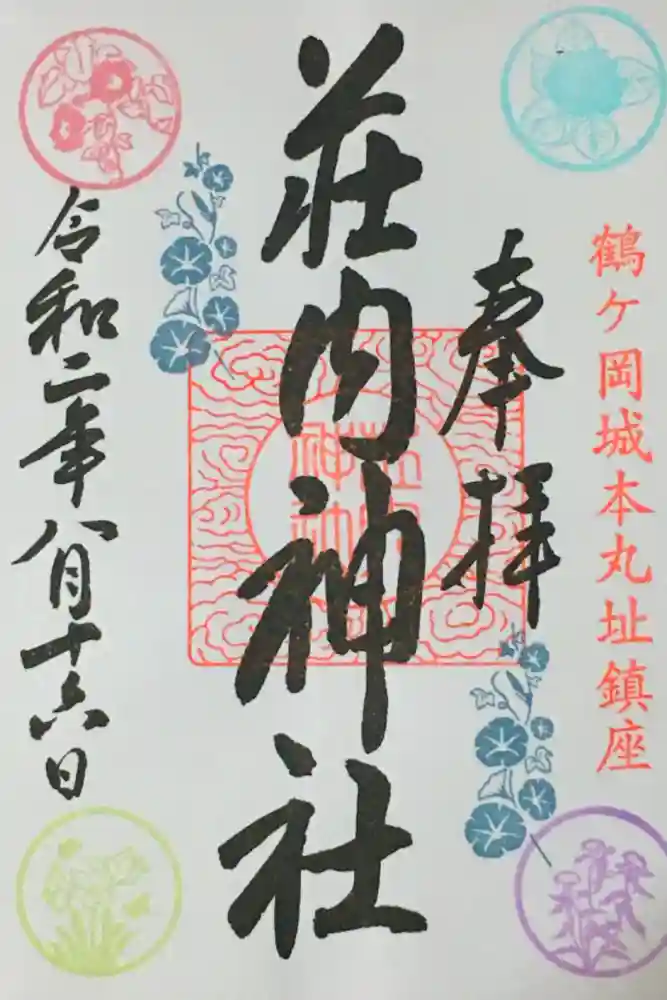 鶴ケ岡城本丸址鎮座
奉拝
荘内神社
令和二年八月十六日